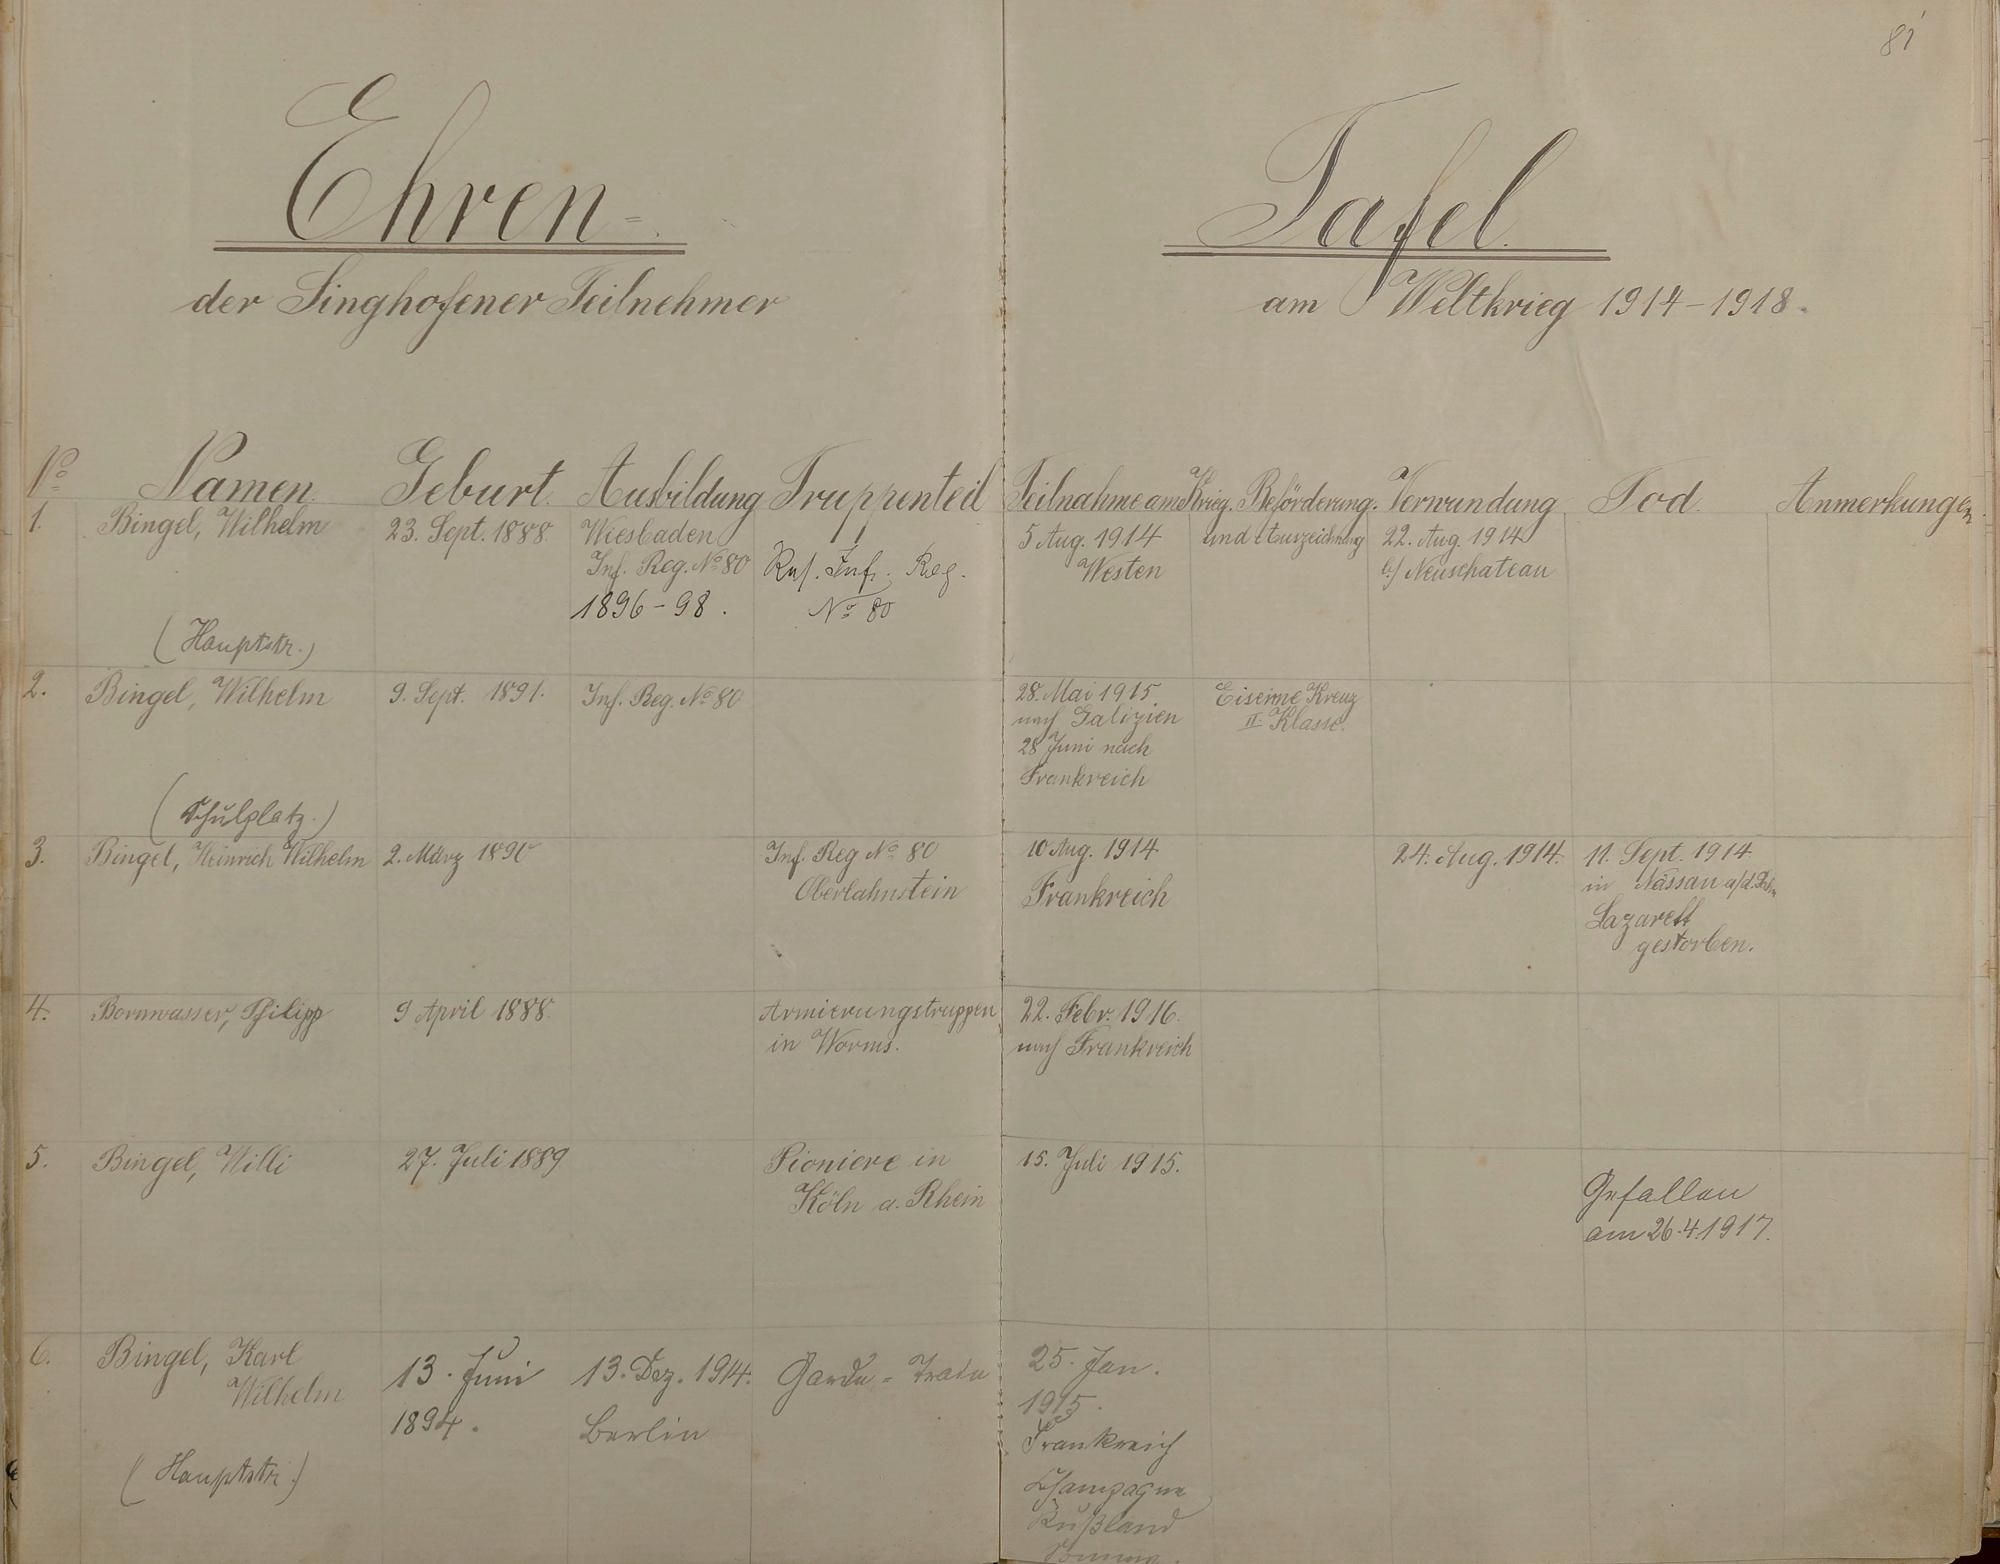 81
Ehren=
Tafel.
der Singhofener Teilnehmer
am Weltkrieg 1914-1918.
No
Namen.
Geburt.
Ausbildung
Truppenteil
Teilnahme am Krieg.
Beförderung.
und Auszeichnung
Verwundung
Tod.
Anmerkungen
1.
Bingel, Wilhelm
(Hauptstr.)
23. Sept. 1888.
Wiesbaden
Inf. Reg. No 80
1896-98.
Res. Inf. Reg.
No 80
5 Aug. 1914
Westen
22. Aug. 1914
b/ Neuschateau
2.
Bingel, Wilhelm
(Schulplatz.)
9. Sept. 1891.
Inf. Reg. No 80
28. Mai 1915
nach Galizien
28 Juni nach
Frankreich
Eiserne Kreuz
II. Klasse.
3.
Bingel, Heinrich Wilhelm
2. März 1890
Inf. Reg No 80
Oberlahnstein
10 Aug. 1914
Frankreich
24. Aug. 1914.
11. Sept. 1914
in Nassau a/d. Lahn
Lazarett
gestorben.
4.
Bornwasser, Philipp
9 April 1888.
Armierungstruppen
in Worms.
22. Febr. 1916.
nach Frankreich
5.
Bingel, Willi
27. Juli 1889
Pioniere in
Köln a. Rhein
15. Juli 1915.
Gefallen
am 26.4.1917.
6.
Bingel, Karl
Wilhelm
(Hauptstr.)
13. Juni
1894.
13. Dez. 1914.
Berlin
Garde-Train
25. Jan.
1915.
Frankreich
Champagne
Rußland